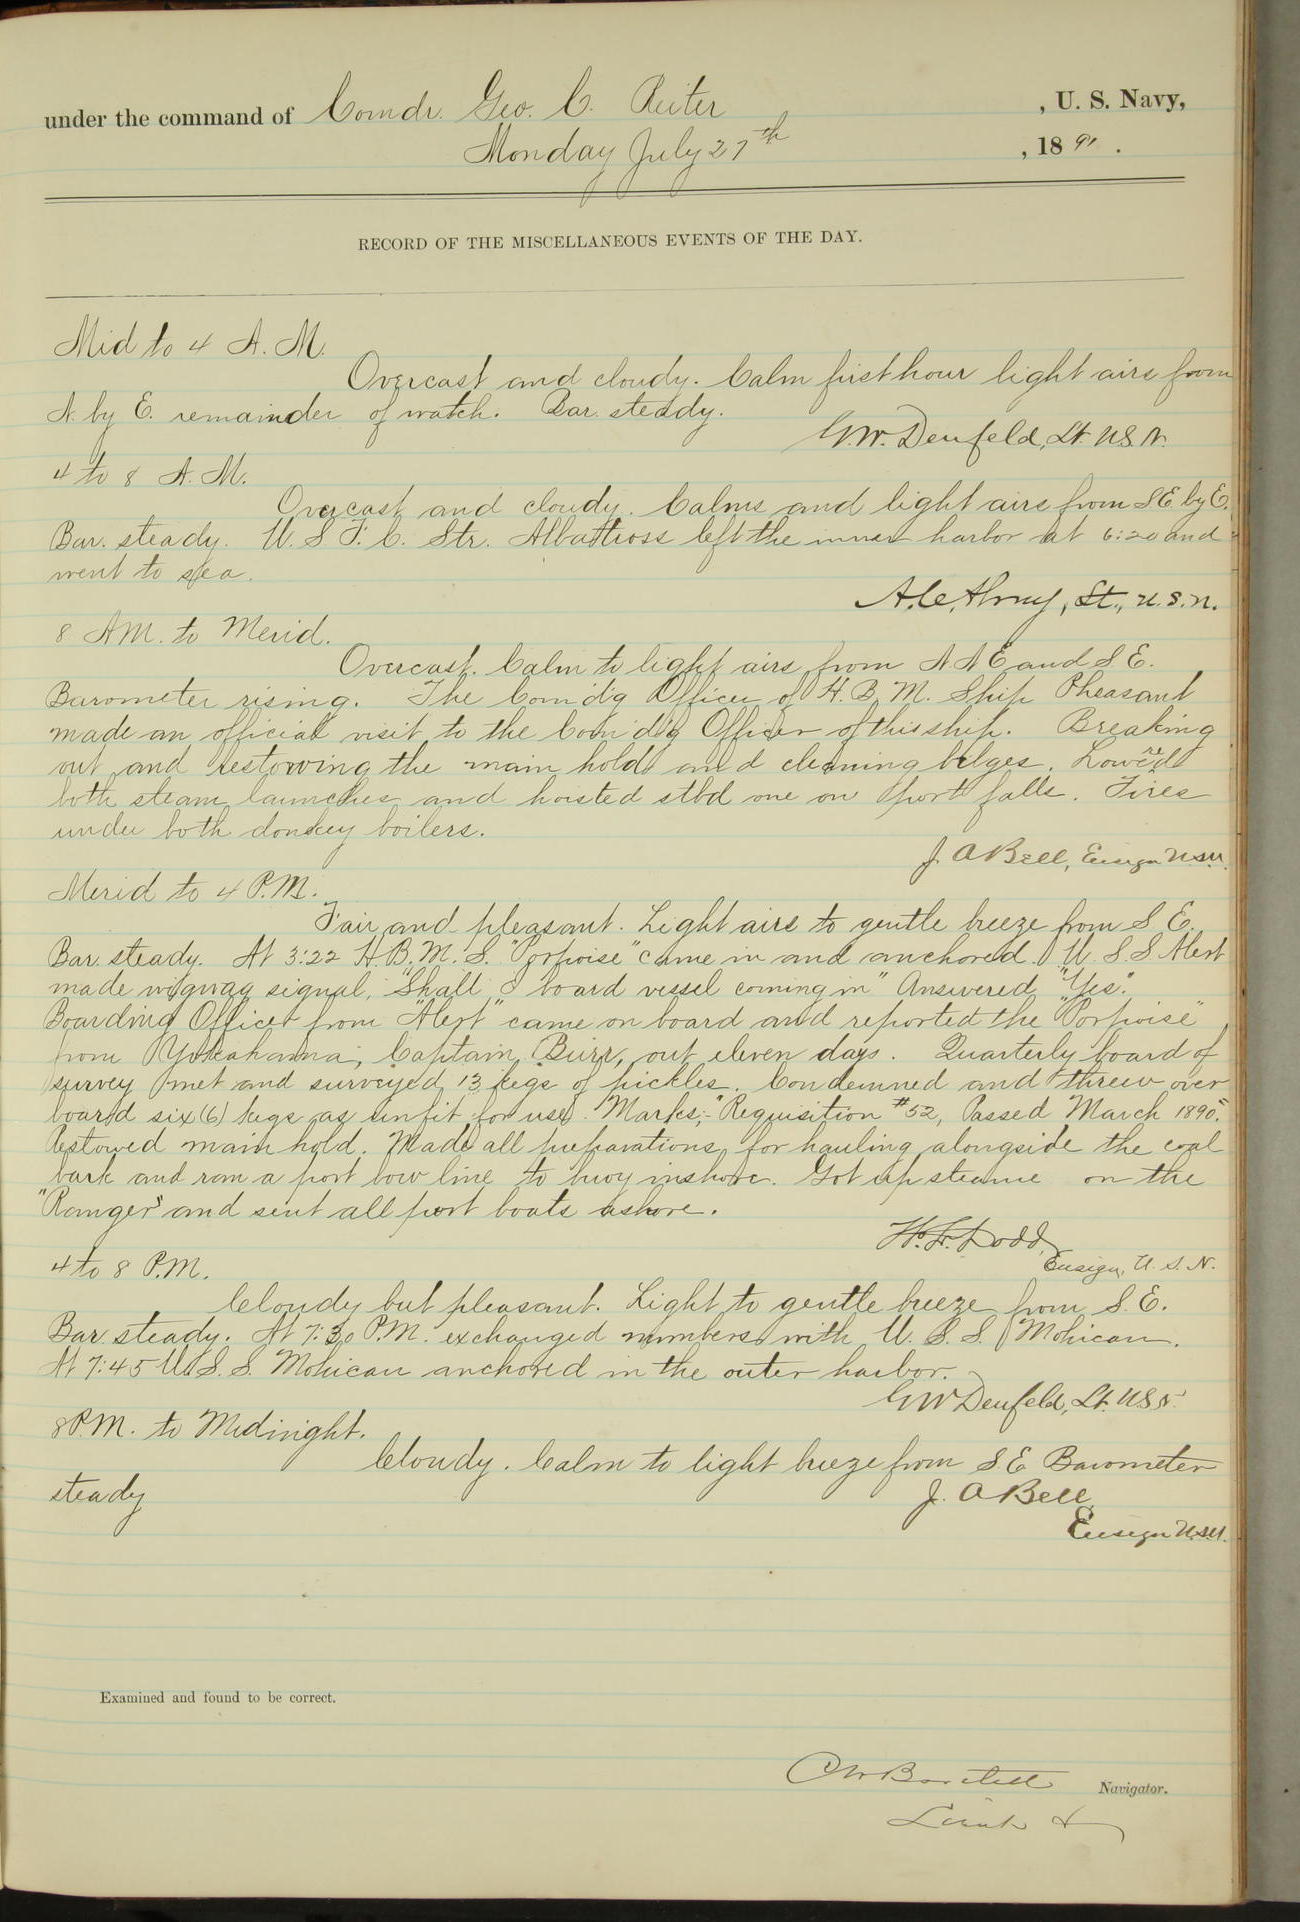 under the command of Comdr. Geo. C. Reiter , U. S. Navy,
Monday July 27th , 1891 .
RECORD OF THE MISCELLANEOUS EVENTS OF THE DAY.
Mid to 4 A. M.
Overcast and cloudy. Calm first hour light airs from
N. by E. remainder of watch. Bar. steady.
G.W. Denfeld, Lt. U.S.N.
4 to 8 A. M.
Overcast and cloudy. Calms and light airs from SE by E.
Bar. steady. U. S F. C. Str. Albatross left the inner harbor at 6:20 and
went to sea.
A.C. Almy, Lt., U.S.N.
8 AM. to Merid.
Overcast. Calm to light airs from N N E and S E.
Barometer rising. The Com'd'g Officer of H. B. M. Ship Pheasant
made an official visit to the Com'd'g Officer of this ship. Breaking
out and restowing the main hold and cleaning bilges. Lowered
both steam launches and hoisted stbd one on port falls. Fires
under both donkey boilers.
J. A Bell, Ensign U.S.N.
Merid to 4 P.M.
Fair and pleasant. Light airs to gentle breeze from S E.
Bar. steady. At 3:22 H. B. M. S. "Porpoise" came in and anchored. U. S S Alert
made wigwag signal, "Shall I board vessel coming in" Answered "Yes".
Boarding Officer from "Alert" came on board and reported the "Porpoise"
from Yokahama, Captain Burr, out eleven days. Quarterly board of
survey met and surveyed 13 kegs of pickles. Condemned and threw over
board six (6) kegs as unfit for use. Marks;- "Requisition #52, Passed March 1890".
Restowed main hold. Made all preparations for hauling alongside the coal
bark and ran a port bow line to buoy inshore. Got up steam on the
"Ranger's" and sent all port boats ashore.
H. F. Dodd,
Ensign, U. S. N.
4 to 8 P.M.
Cloudy but pleasant. Light to gentle breeze from S. E.
Bar steady. At 7:30 P.M. exchanged numbers with U. S. S. Mohican.
At 7:45 U. S. S. Mohican anchored in the outer harbor.
G W Denfeld, Lt. U S N.
8 P.M. to Midnight.
Cloudy. Calm to light breeze from S. E Barometer
steady
J. A Bell
Ensign U.S.N.
Examined and found to be correct.
C W Bartlett Navigator.
Lieut